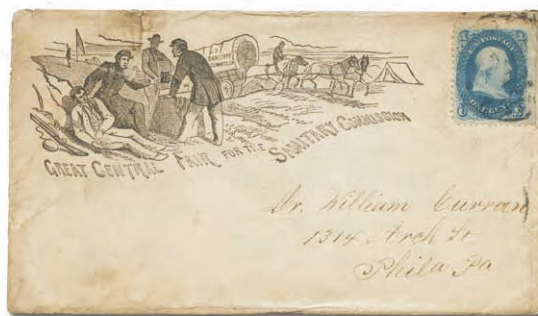 U.S. SANITARY COMMISSION
GREAT CENTRAL FAIR FOR THE SANITARY COMMISSION
U.S. POSTAGE
ONE CENT
Dr. William Curran
1314 Arch St
Phila Pa